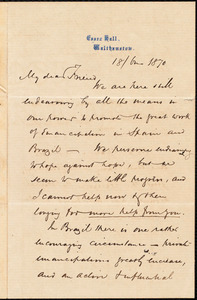 Essex Hall,
Walthamstow.
18/ 1870
My dear Friend
We are here still
endeavoring by all the means in
our power to promote the great work
of Emancipation in Spain and
Brazil — We persevere
to hope against hope, but we
seem to make little progress, and
I cannot help now & then
longing for more help from you.
In Brazil there is one rather
encouraging circumstance — private
emancipations greatly increase,
and an active & influential